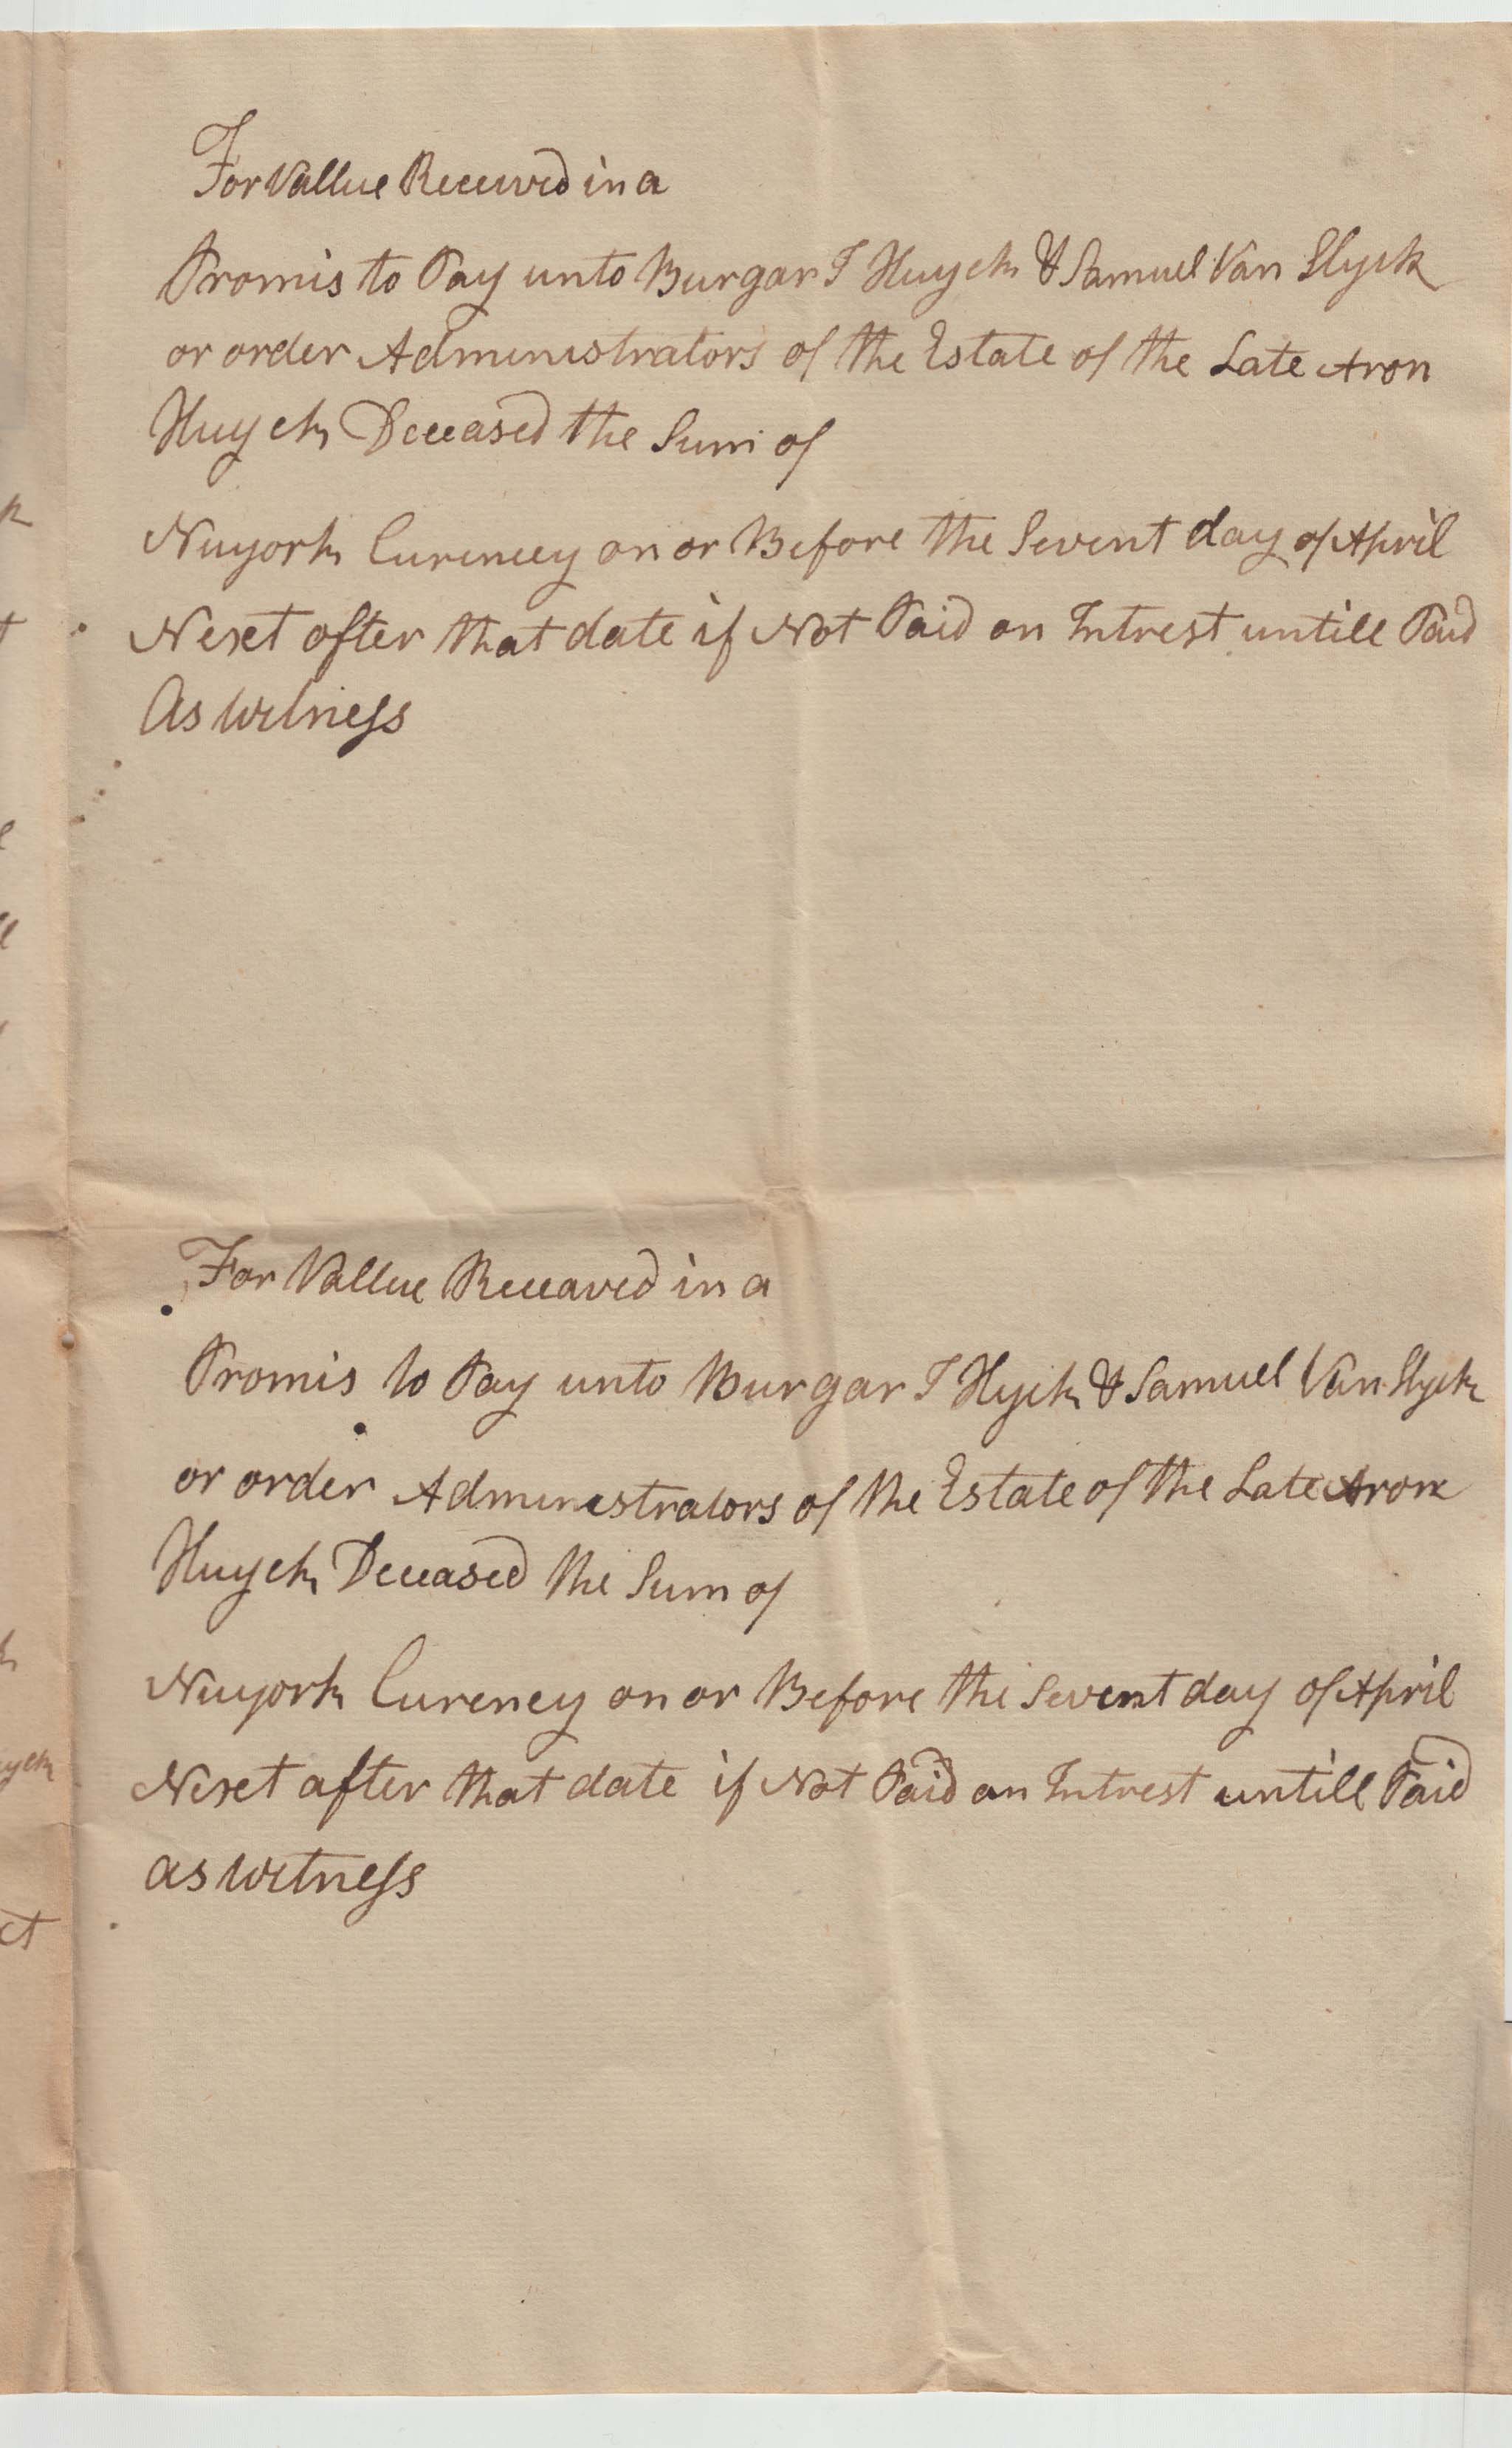 For Vallue Received in a
Promis to Pay unto Burgar T Huyck & Samuel Van Slyck
or order Administrators of the Estate of the Late Aron
Huyck Deceased the Sum of
Nuyork Curencey on or Before the Sevent day of April
Next after that date if Not Paid on Intrest untill Paid
As Witness
For Vallue Receaved in a
Promis to Pay unto Burgar T Hyck & Samuel Van Slyck
or order Administrators of the Estate of the Late Aron
Huyck Deceased the Sum of
Nuyork Cureney on or Before the Sevent day of April
Next after that date if Not Paid on Intrest untill Paid
as Witness